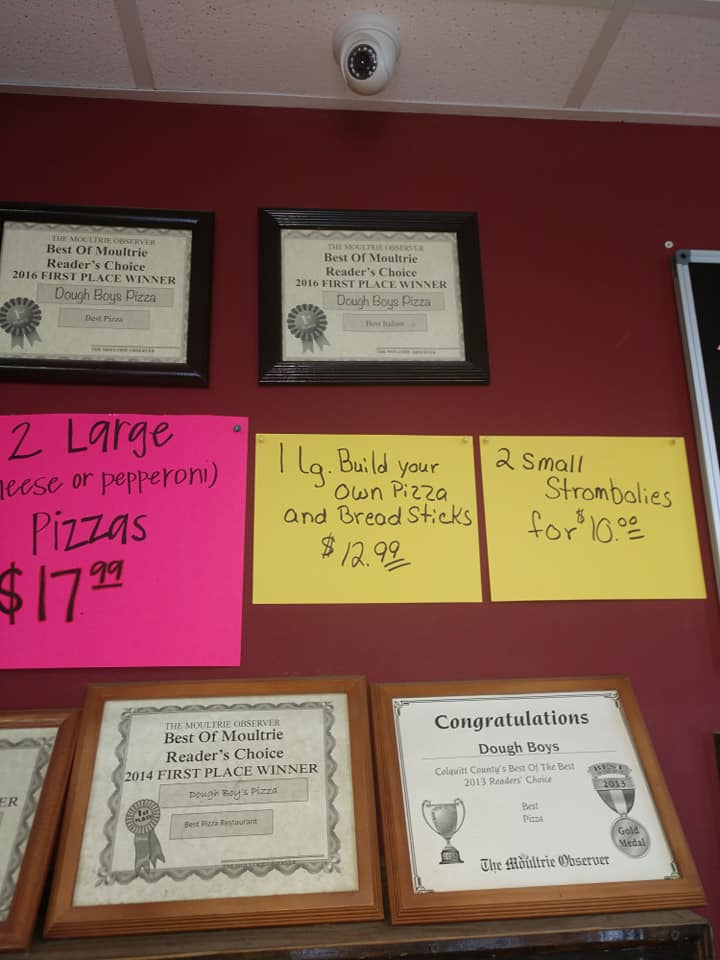 THE MOULTRIE OBSERVER
Best Of Moultrie
Reader's Choice
2016 FIRST PLACE WINNER
Dough Boys Pizza
Best Pizza
THE MOULTRIE OBSERVER
THE MOULTRIE OBSERVER
Best Of Moultrie
Reader's Choice
2016 FIRST PLACE WINNER
Dough Boys Pizza
Best Italian
THE MOULTRIE OBSERVER
2 Large
heese or pepperoni)
Pizzas
$17 99
1 Lg. Build your
own Pizza
and Bread Sticks
$12.99
2 Small
Strombolies
for $10.00
ER
THE MOULTRIE OBSERVER
Best Of Moultrie
Reader's Choice
2014 FIRST PLACE WINNER
Dough Boy's Pizza
1st
PLACE
Best Pizza Restaurant
Congratulations
Dough Boys
Colquitt County's Best Of The Best
2013 Readers' Choice
Best
Pizza
BEST
2013
Gold
Medal
The Moultrie Observer